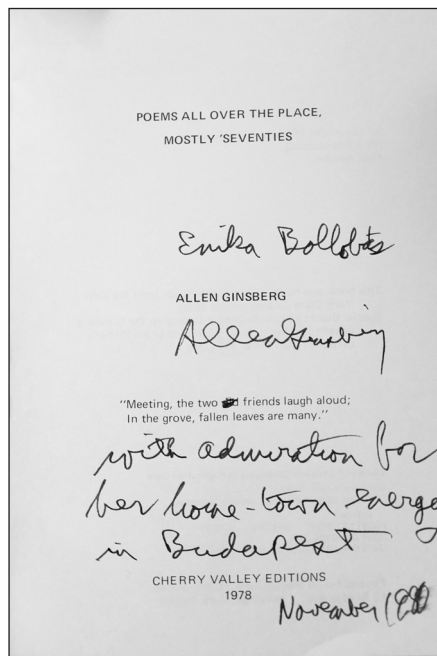 POEMS ALL OVER THE PLACE,
MOSTLY 'SEVENTIES
Enika Bollobás
ALLEN GINSBERG
Allen Ginsberg
"Meeting, the two friends laugh aloud;
In the grove, fallen leaves are many."
with admiration for
her home-town energy
in Budapest
CHERRY VALLEY EDITIONS
1978
November